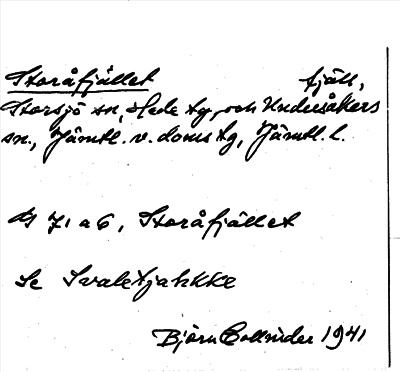 Storåfjället fjäll,
Storsjö sn, Hede tg, och Undersåkers
sn., Jämtl. v. doms tg, Jämtl. l.
GS 71 a 6, Storåfjället
Se Svaletjahkke
Björn Collinder 1941